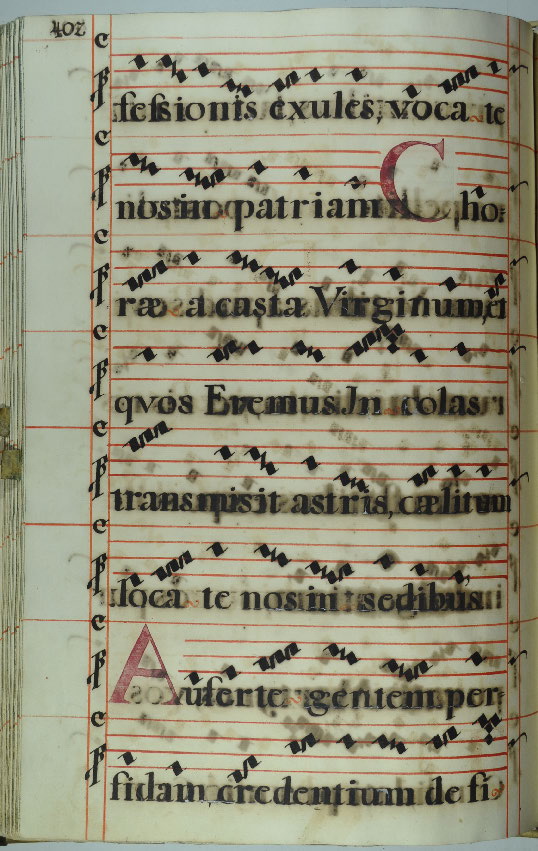 402
fessionis exules, voca te
nos in patriam C ho:
ræ a casta Virginum, et
qvos Eremus In colas
transmisit astris, cælitum
loca te nos in sedibus
Auferte gentem per:
fidam credentium de fi